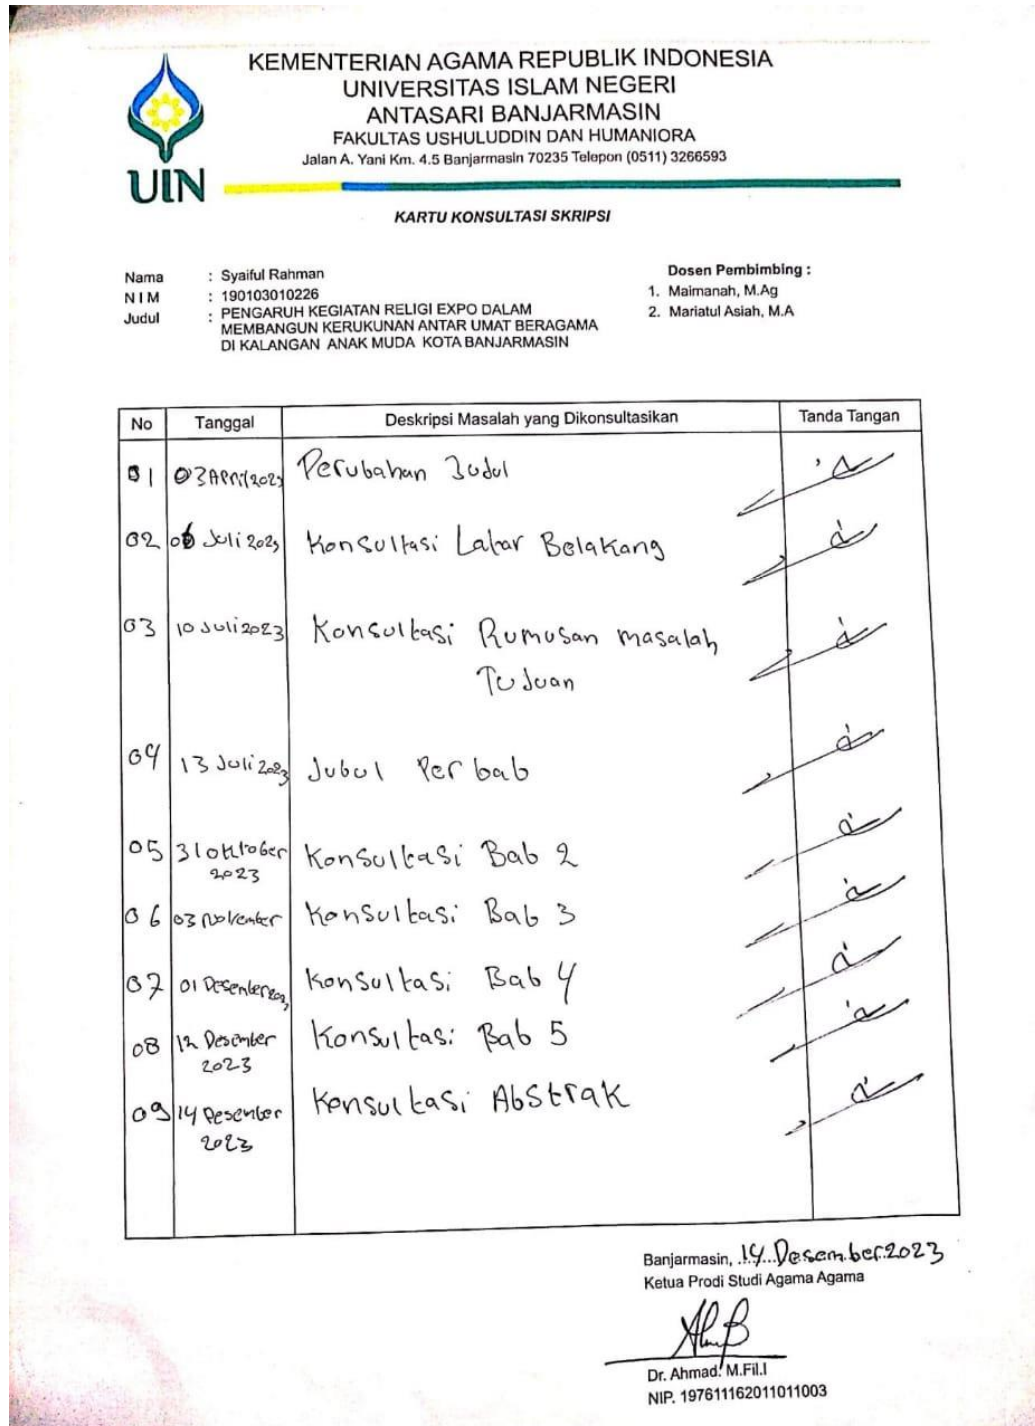 KEMENTERIAN AGAMA REPUBLIK INDONESIA
UNIVERSITAS ISLAM NEGERI
ANTASARI BANJARMASIN
FAKULTAS USHULUDDIN DAN HUMANIORA
Jalan A. Yani Km. 4.5 Banjarmasin 70235 Telepon (0511) 3266593
UIN
KARTU KONSULTASI SKRIPSI
Nama : Syaiful Rahman
NIM : 190103010226
Judul : PENGARUH KEGIATAN RELIGI EXPO DALAM
MEMBANGUN KERUKUNAN ANTAR UMAT BERAGAMA
DI KALANGAN ANAK MUDA KOTA BANJARMASIN
Dosen Pembimbing :
1. Maimanah, M.Ag
2. Mariatul Asiah, M.A
No Tanggal Deskripsi Masalah yang Dikonsultasikan Tanda Tangan
01 03 April 2023 Perubahan Judul
02 06 Juli 2023 Konsultasi Latar Belakang
03 10 Juli 2023 Konsultasi Rumusan masalah
Tujuan
04 13 Juli 2023 Jubul Per bab
05 31 Oktober Konsultasi Bab 2
2023
06 03 November Konsultasi Bab 3
07 01 Desember 2023 Konsultasi Bab 4
08 12 Desember Konsultasi Bab 5
2023
09 14 Desember Konsultasi Abstrak
2023
Banjarmasin, 14 Desember 2023
Ketua Prodi Studi Agama Agama
Dr. Ahmad. M.Fil.I
NIP. 197611162011011003